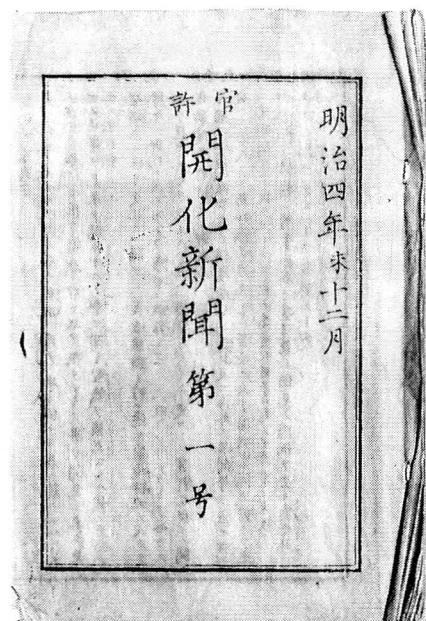 明治四年未十二月
官許
開化新聞第一号